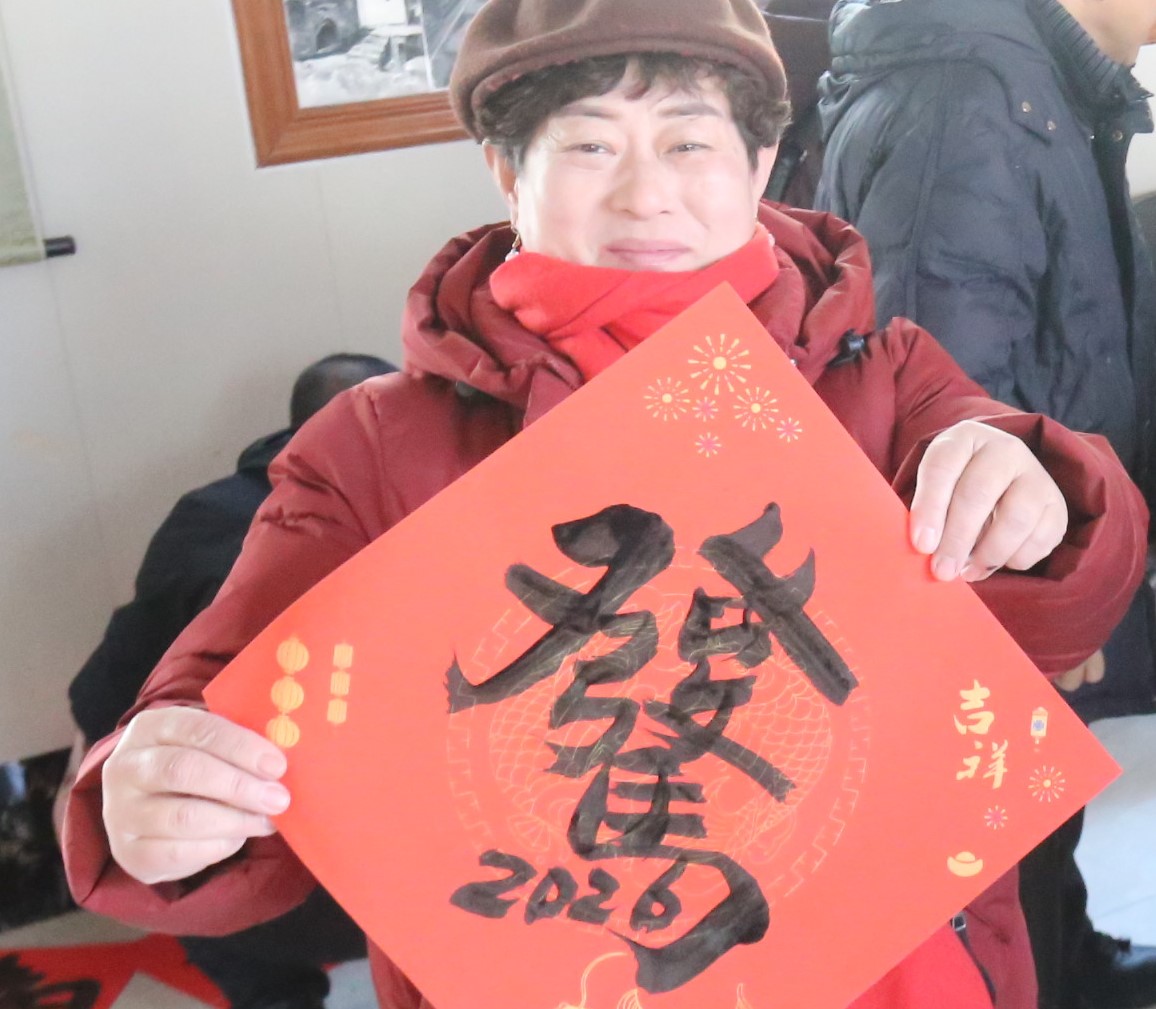 發
馬
2026
吉祥